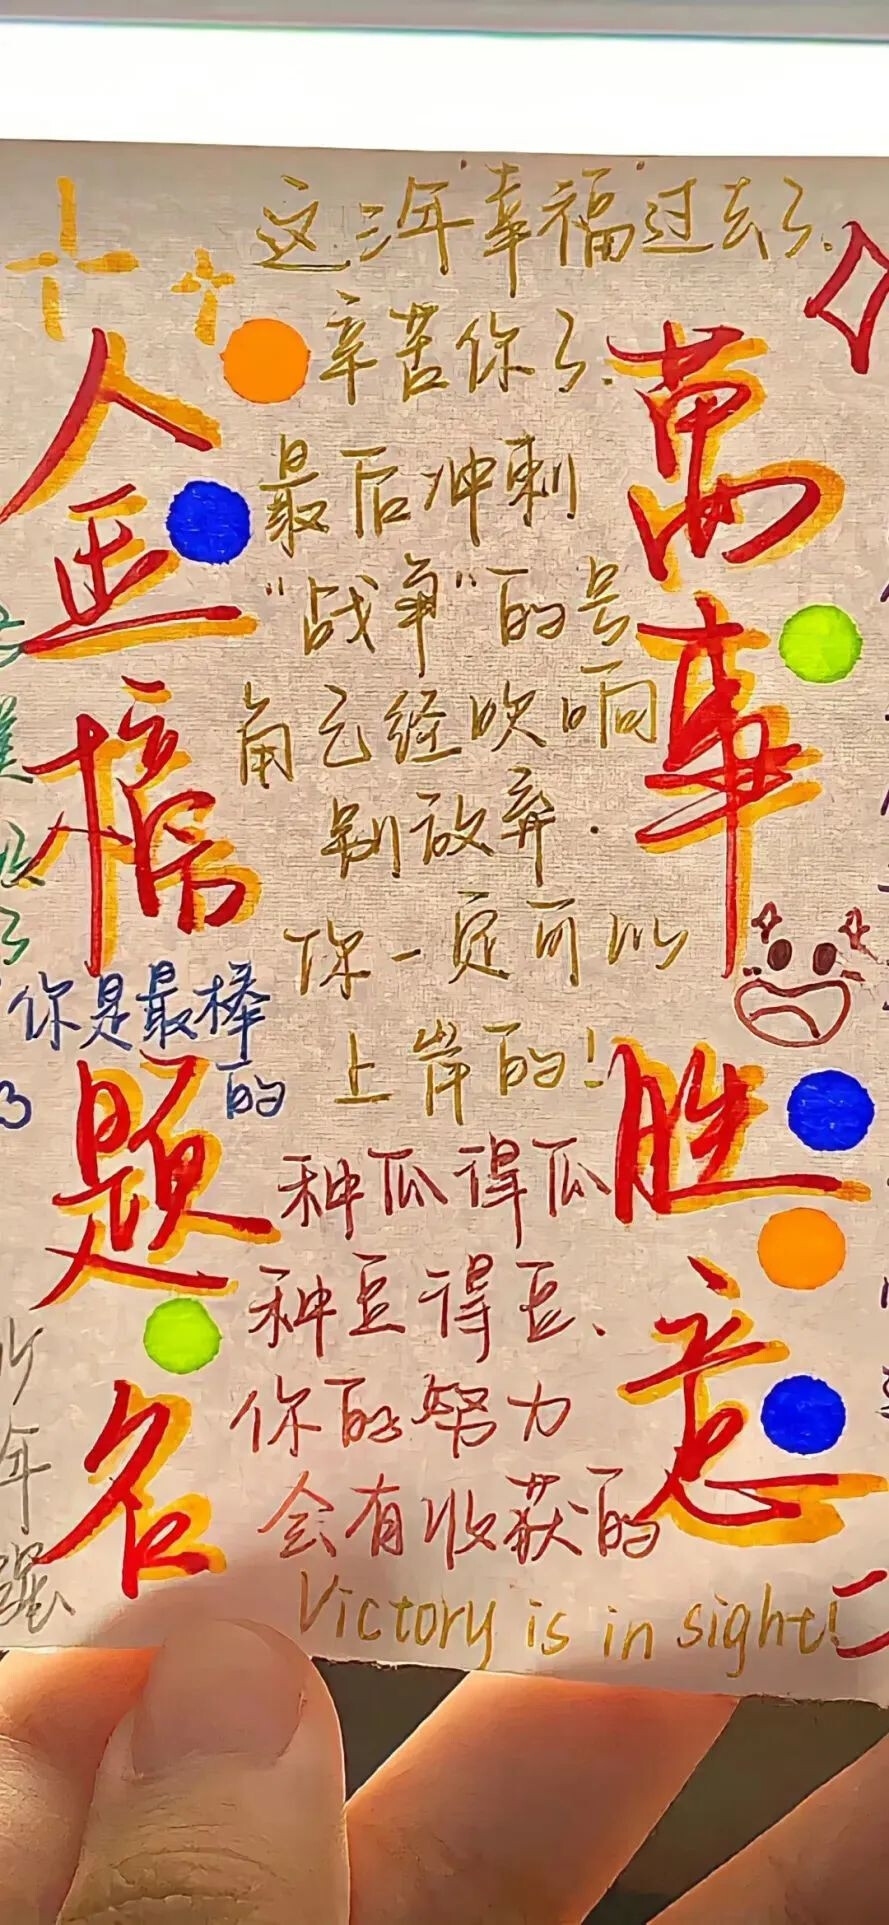 萬事胜意
金榜题名
这三年幸福过去了.
辛苦你了.
最后冲刺
“战争”的号
角已经吹响
别放弃.
你一定可以
上岸的!
种瓜得瓜
种豆得豆、
你的努力
会有收获的
Victory is in sight!
你是最棒
的
少年强